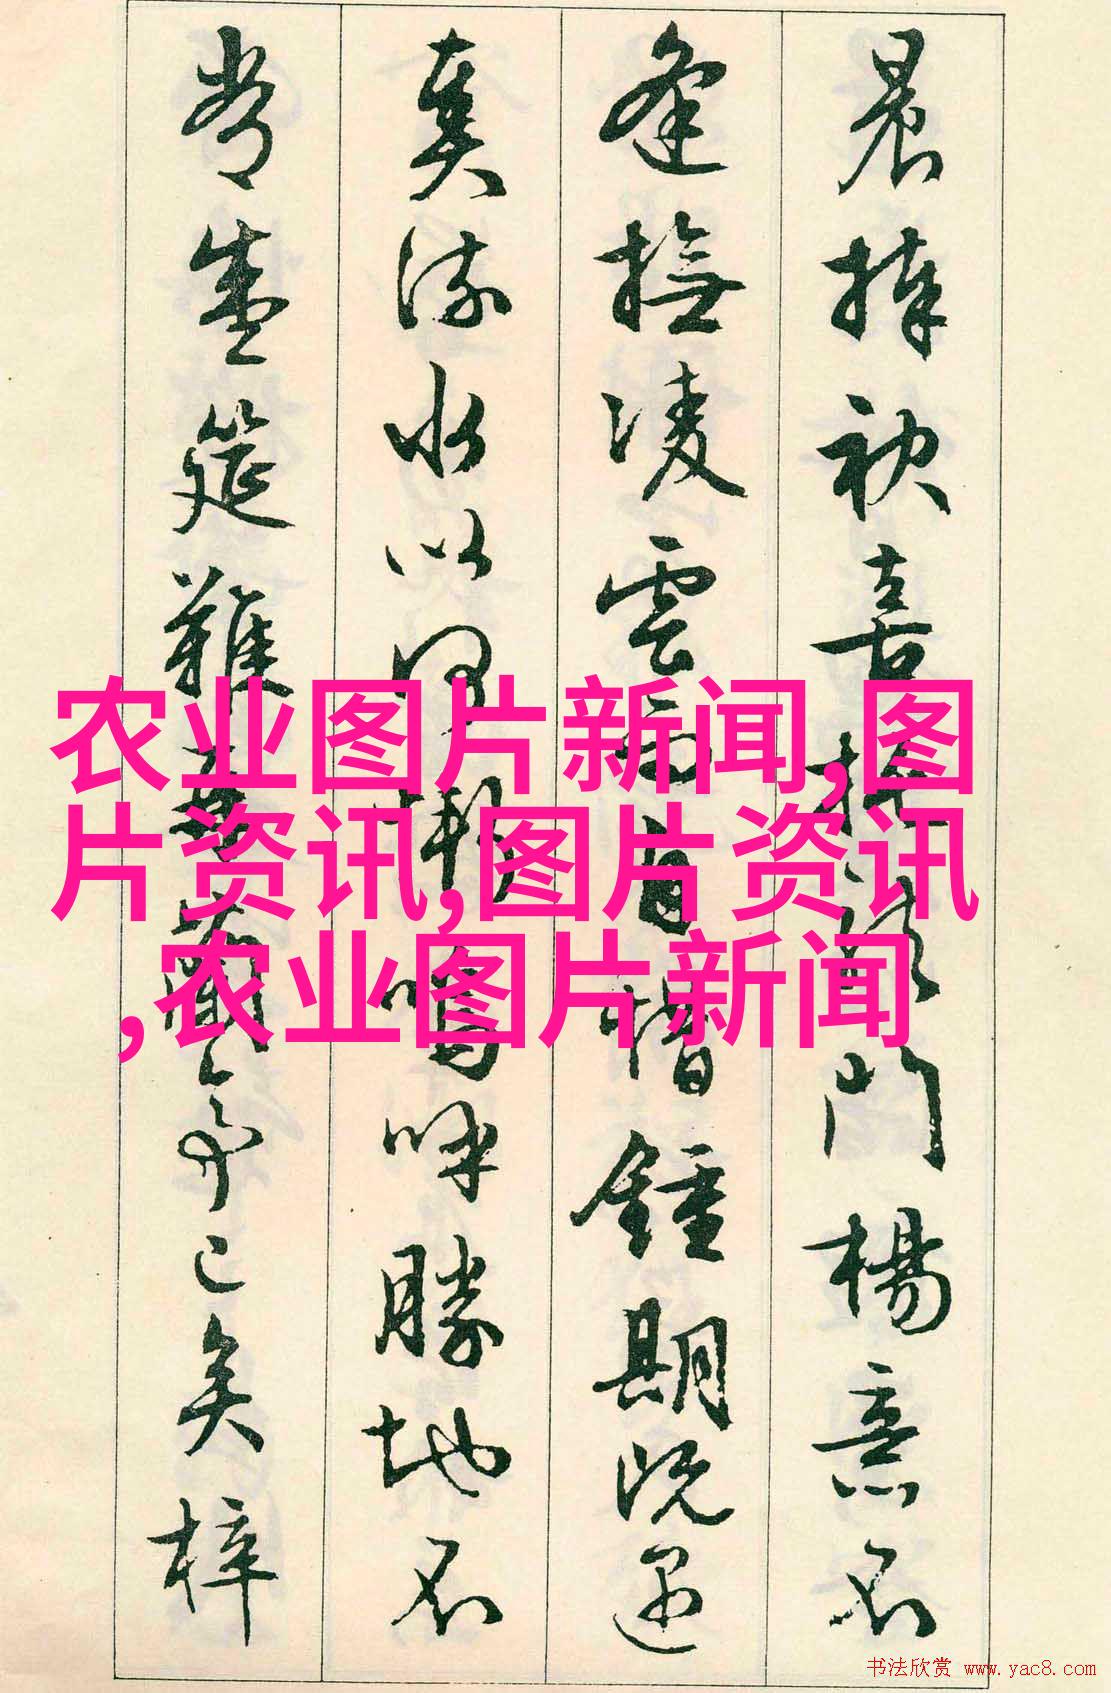 晨捧袂喜托龍門楊意不
逢撫凌雲而自惜鍾期既遇
奏流水以何慚嗚呼勝地不
常盛筵難再蘭亭已矣梓
农业图片新闻,图
片资讯,图片资讯
,农业图片新闻
书法欣赏 www.yac8.com